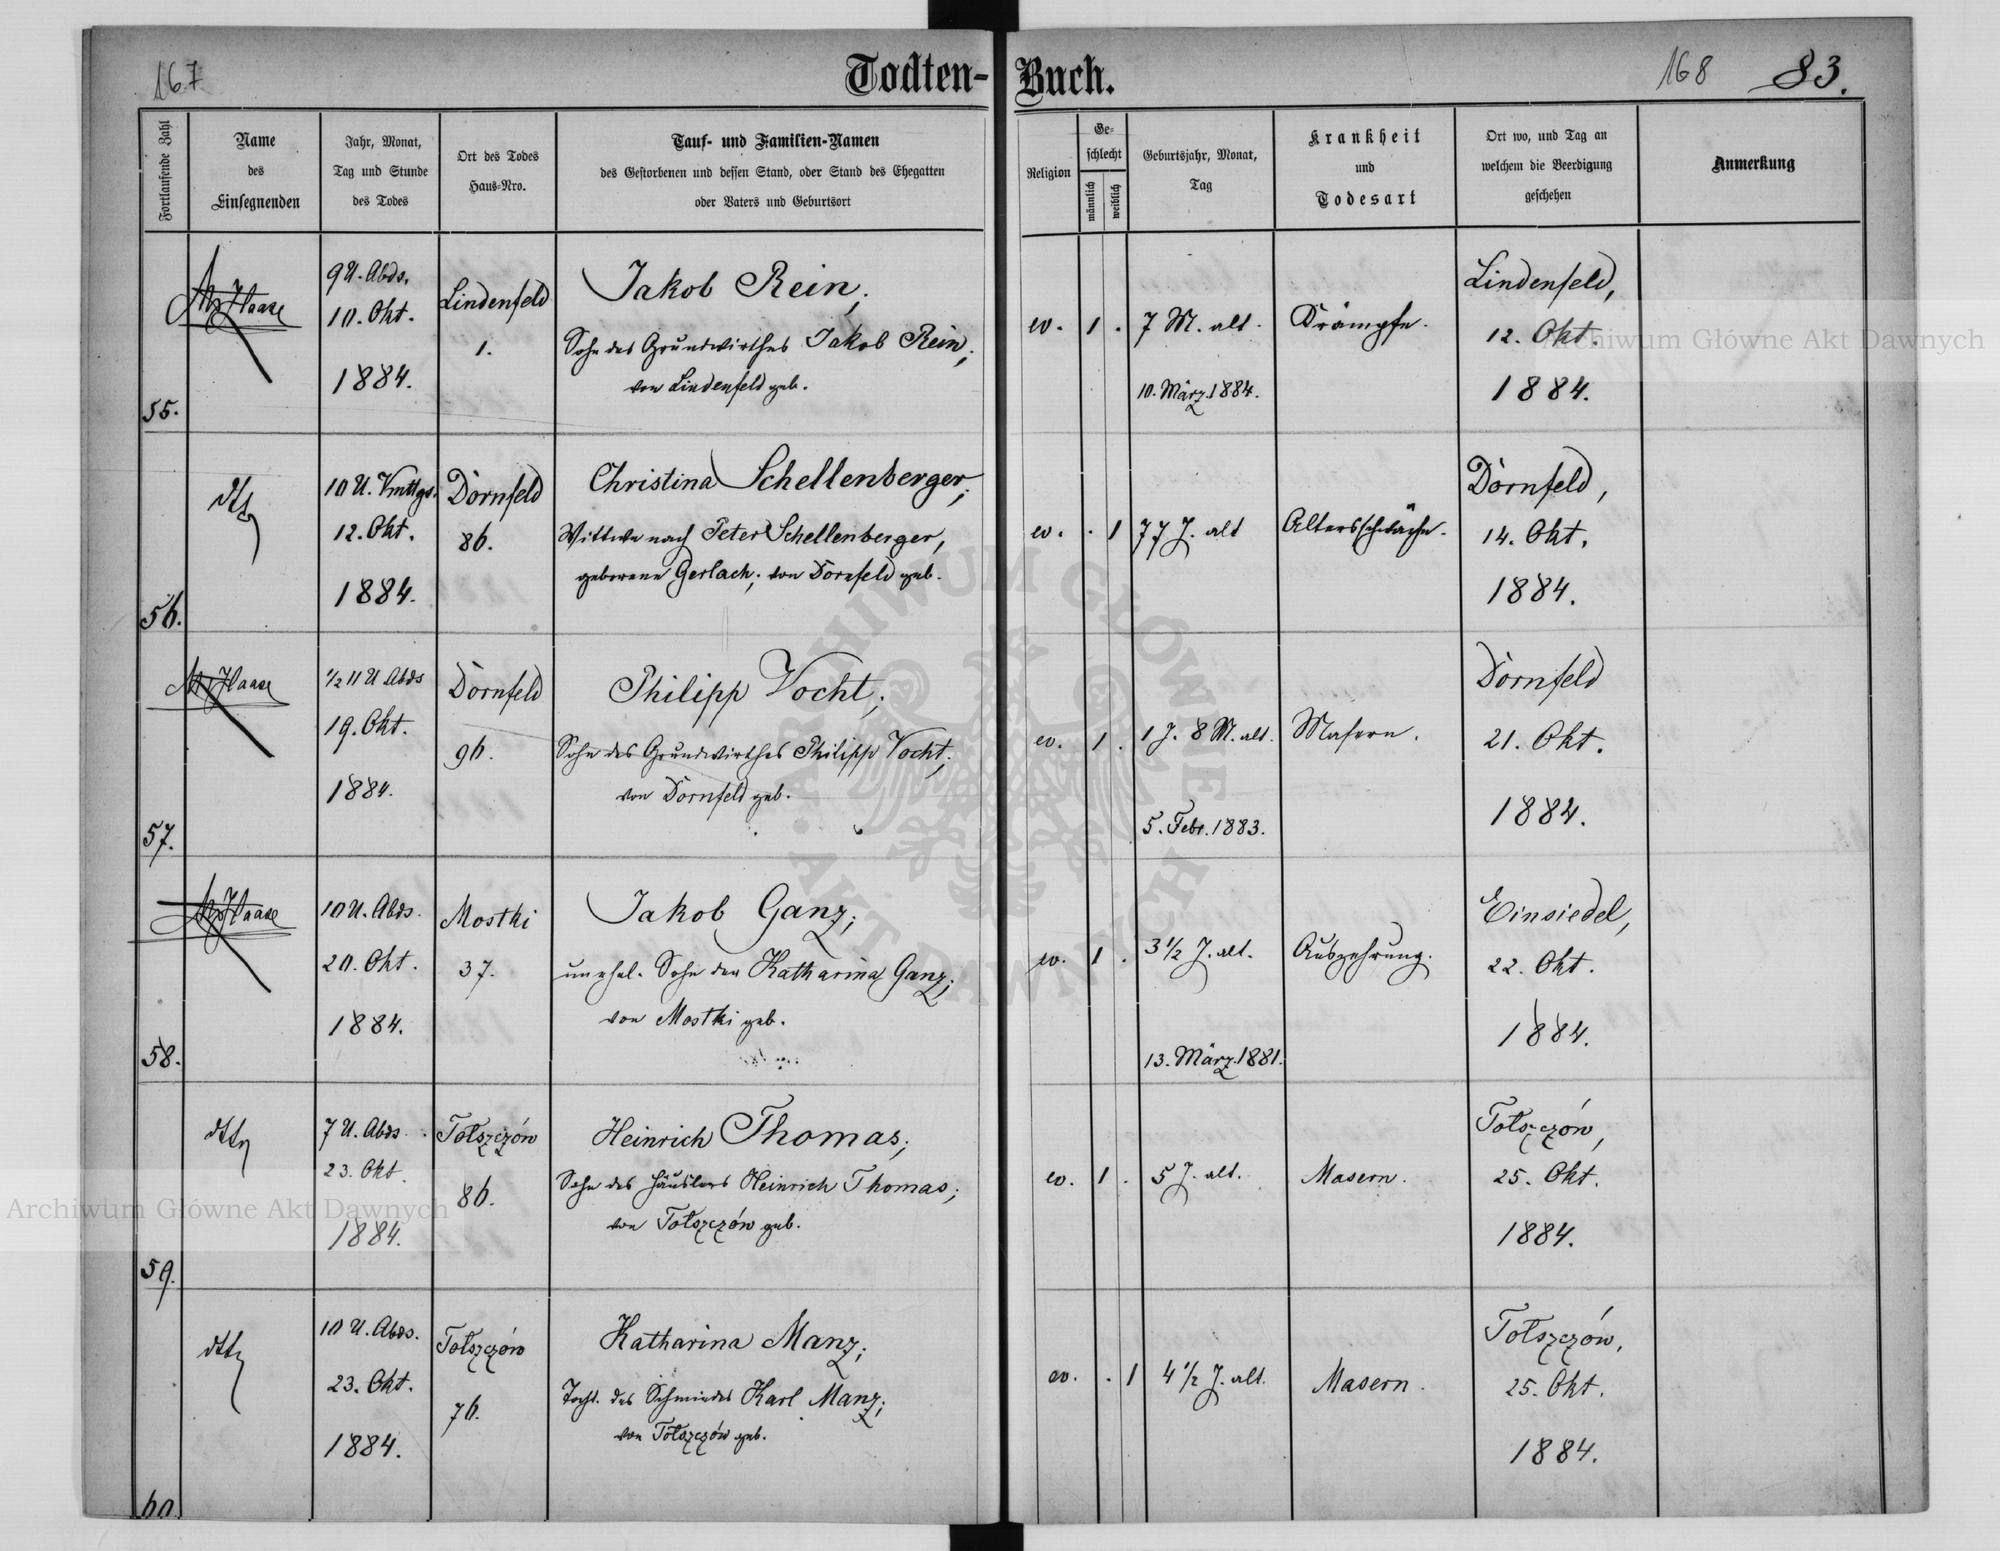 167
Todten-Buch.
168 83.
Fortlaufende Zahl
Name
des
Einsegnenden
Jahr, Monat,
Tag und Stunde
des Todes
Ort des Todes
Haus-Nro.
Tauf- und Familien-Namen
des Gestorbenen und dessen Stand, oder Stand des Ehegatten
oder Vaters und Geburtsort
Religion
Ge-
schlecht
männlich
weiblich
Geburtsjahr, Monat,
Tag
Krankheit
und
Todesart
Ort wo, und Tag an
welchem die Beerdigung
geschehen
Anmerkung
55.
Haase
9 U. Abds.
10. Okt.
1884.
Lindenfeld
1.
Jakob Rein;
Sohn des Grundwirthes Jakob Rein;
von Lindenfeld geb.
ev.
1 .
7 M. alt.
10. März 1884.
Krämpfe.
Lindenfeld,
12. Okt.
1884.
56.
dtto
10 U. Vmttgs.
12. Okt.
1884.
Dornfeld
86.
Christina Schellenberger;
Wittwe nach Peter Schellenberger,
geborene Gerlach; von Dornfeld geb.
ev.
. 1
77 J. alt
Altersschwäche.
Dornfeld,
14. Okt.
1884.
57.
Haase
1/2 11 U Abds
19. Okt.
1884.
Dornfeld
96.
Philipp Vocht;
Sohn des Grundwirthes Philipp Vocht;
von Dornfeld geb.
ev.
1 .
1 J. 8 M. alt.
5. Febr. 1883.
Masern.
Dornfeld
21. Okt.
1884.
58.
Haase
10 U. Abds.
20. Okt.
1884.
Mostki
37.
Jakob Ganz;
unehel. Sohn der Katharina Ganz;
von Mostki geb.
ev.
1 .
3 1/2 J. alt.
13. März 1881.
Auszehrung.
Einsiedel,
22. Okt.
1884.
59.
dtto
7 U. Abds.
23. Okt.
1884.
Tołszczów
86.
Heinrich Thomas;
Sohn des Häuslers Heinrich Thomas;
von Tołszczów geb.
ev.
1 .
5 J. alt.
Masern.
Tołszczów,
25. Okt.
1884.
60.
dtto
10 U. Abds.
23. Okt.
1884.
Tołszczów
76.
Katharina Manz;
Tocht. des Schmiedes Karl Manz;
von Tołszczów geb.
ev.
. 1
4 1/2 J. alt.
Masern.
Tołszczów,
25. Okt.
1884.
Archiwum Główne Akt Dawnych
Archiwum Główne Akt Dawnych
ARCHIWUM GŁÓWNE AKT DAWNYCH